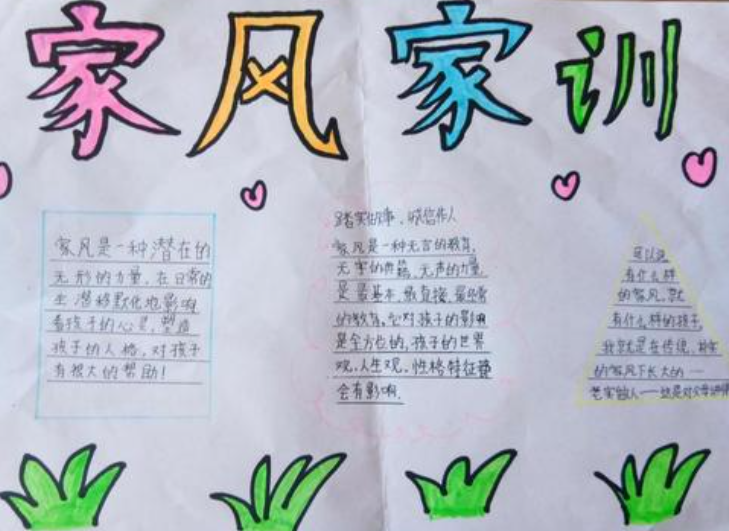 家风家训
家风是一种潜在的
无形的力量,在日常的
生潜移默化地影响
着孩子的心灵,塑造
孩子的人格,对孩子
有很大的帮助!
踏实做事,诚信作人
家风是一种无言的教育,
无字的典籍,无声的力量,
是最基本,最直接,最经常
的教育,它对孩子的影响
是全方位的,孩子的世界
观,人生观,性格特征
会有影响.
可以说
有什么样
的家风,就
有什么样的孩子,
我就是在传统,朴实
的家风下长大的一
老实做人——这是对父母